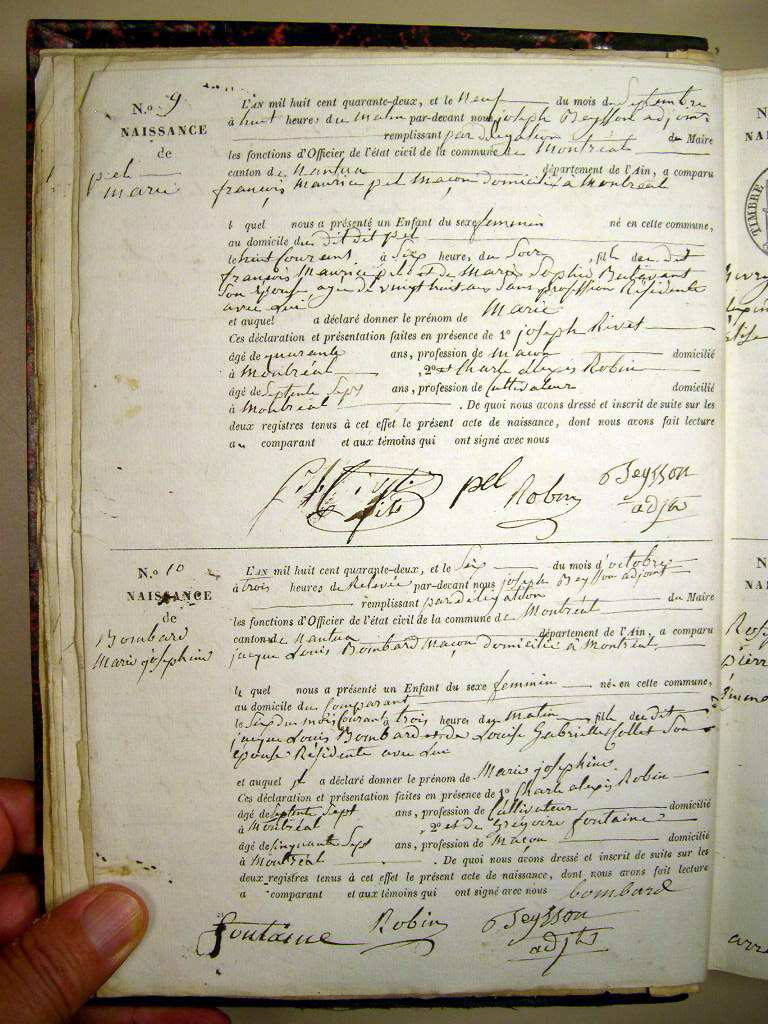 N.o 9
NAISSANCE
de
pel
marie
L'AN mil huit cent quarante-deux, et le neuf du mois de Septembre
à huit heures du matin par-devant nous joseph Beysson adjoint
remplissant par délégation du Maire
les fonctions d'Officier de l'état civil de la commune de Montréal
canton de Nantua département de l'Ain, a comparu
françois Maurice pel Maçon domicilié à Montréal
lequel nous a présenté un Enfant du sexe feminin né en cette commune,
au domicile du dit dit pel
le huit Courant à Six heures du Soir, fille du dit
françois Maurice pel et de Marie Sophie
Son Epouse agée de vingt huit ans Sans profession Résidente
avec Lui
et auquel a déclaré donner le prénom de Marie
Ces déclaration et présentation faites en présence de 1o joseph Rivet
âgé de quarante ans, profession de Maçon domicilié
à Montréal, 2o et Charle alexis Robin
âgé de Septente Sept ans, profession de Cultivateur domicilié
à Montréal. De quoi nous avons dressé et inscrit de suite sur les
deux registres tenus à cet effet le présent acte de naissance, dont nous avons fait lecture
au comparant et aux témoins qui ont signé avec nous
pel Robin Beysson
adjt
N.o 10
NAISSANCE
de
Bombard
Marie josephine
L'AN mil huit cent quarante-deux, et le Six du mois d'octobre
à trois heures de Relevée par-devant nous joseph Beysson adjoint
remplissant par délégation du Maire
les fonctions d'Officier de l'état civil de la commune de Montréal
canton de Nantua département de l'Ain, a comparu
jacque Louis Bombard Maçon domicilié à Montréal
lequel nous a présenté un Enfant du sexe feminin né en cette commune,
au domicile du Comparant
le Six du mois Courant à trois heures du Matin, fille du dit
jacque Louis Bombard et de Louise Gabrielle Collet Son
épouse Résidente avec Lui
et auquel il a déclaré donner le prénom de Marie josephine
Ces déclaration et présentation faites en présence de 1o Charle alexis Robin
âgé de Septente Sept ans, profession de Cultivateur domicilié
à Montréal, 2o et de Grégoire fontaine
âgé de Cinquante Sept ans, profession de Maçon domicilié
à Montréal. De quoi nous avons dressé et inscrit de suite sur les
deux registres tenus à cet effet le présent acte de naissance, dont nous avons fait lecture
a comparant et aux témoins qui ont signé avec nous bombard
fontaine Robin Beysson
adjt
TIMBRE